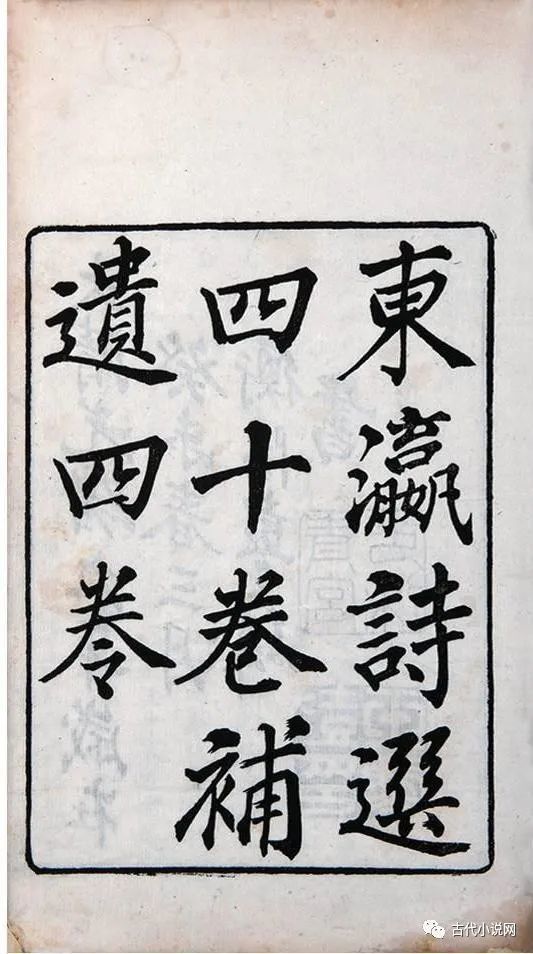 東瀛詩選
四十卷補
遺四卷
古代小说网